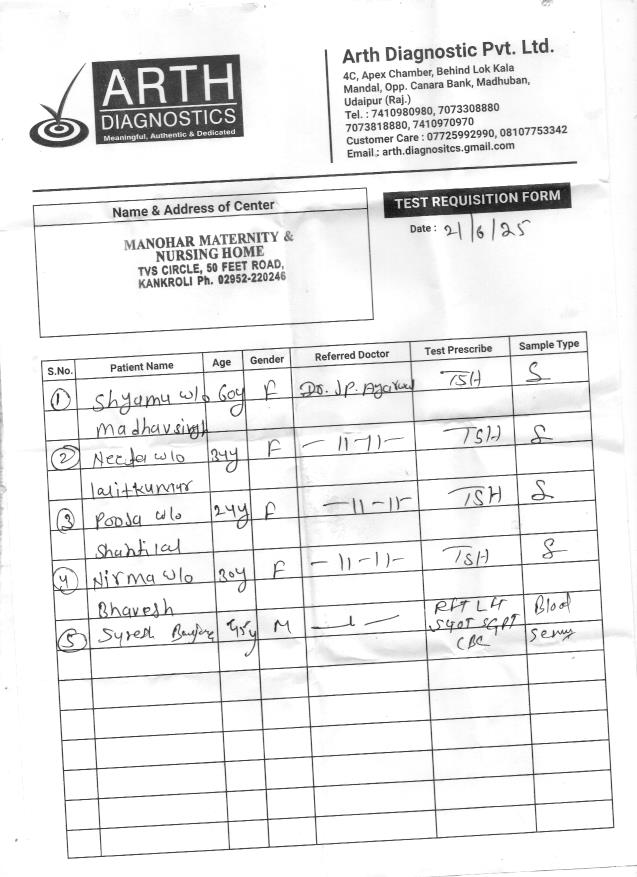 ARTH
DIAGNOSTICS
Meaningful, Authentic & Dedicated
Arth Diagnostic Pvt. Ltd.
4C, Apex Chamber, Behind Lok Kala
Mandal, Opp. Canara Bank, Madhuban,
Udaipur (Raj.)
Tel. : 7410980980, 7073308880
7073818880, 7410970970
Customer Care : 07725992990, 08107753342
Email.: arth.diagnositcs.gmail.com
Name & Address of Center
MANOHAR MATERNITY &
NURSING HOME
TVS CIRCLE, 50 FEET ROAD,
KANKROLI Ph. 02952-220246
TEST REQUISITION FORM
Date : 2/6/25
S.No. Patient Name Age Gender Referred Doctor Test Prescribe Sample Type
1 Shyamu w/o 60y F Dr. J.P. Agarwal TSH S
Madhavsingh
2 Neeta w/o 34y F -11-11- TSH S
lalitkumar
3 Pooja w/o 24y F -11-11- TSH S
Shantilal
4 Nirma w/o 30y F -11-11- TSH S
Bhavesh
5 Suresh M RFT LFT Blood
SGOT SGPT Serum
CBC